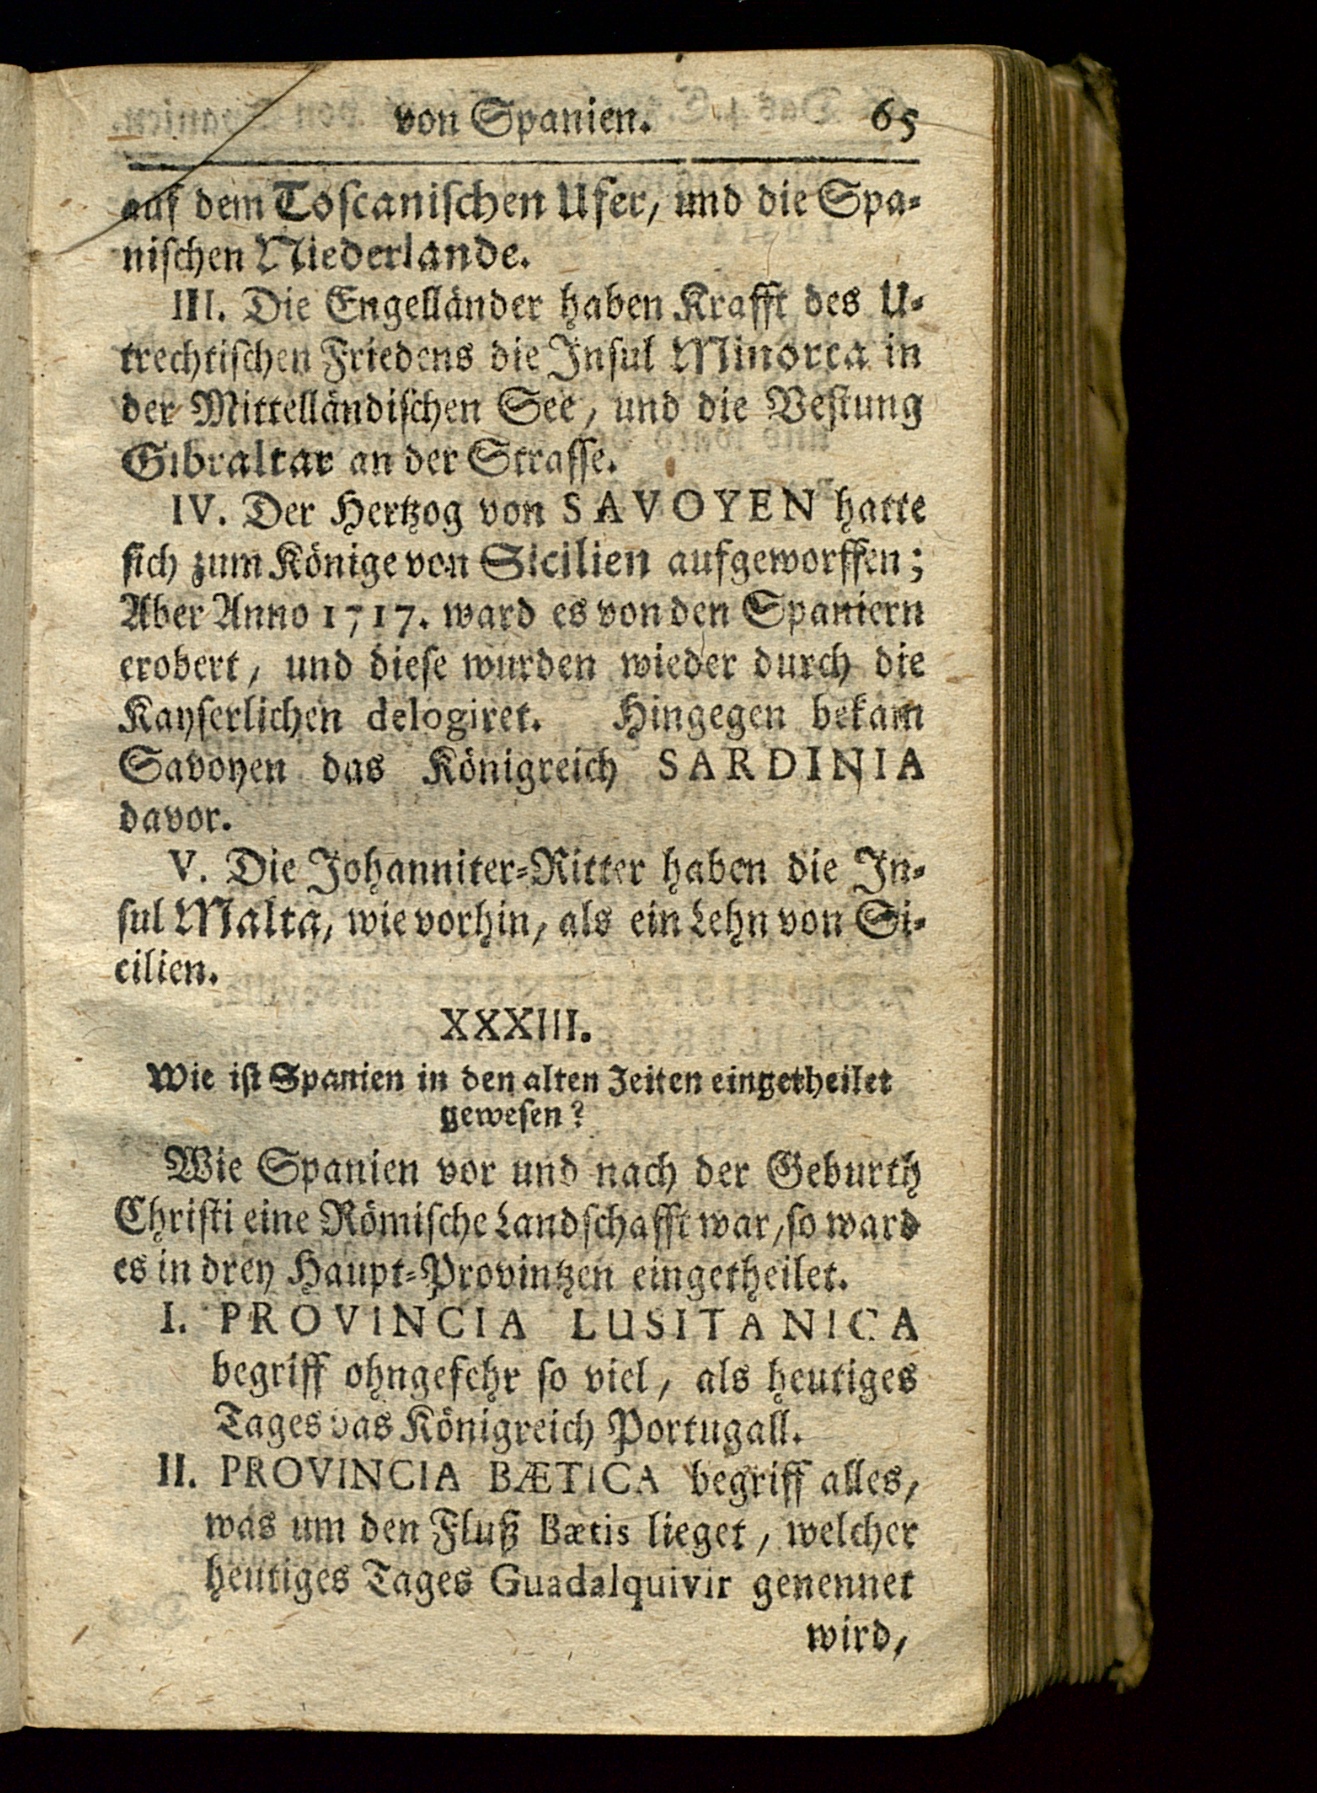 von Spanien. 65
auf dem Toscanischen Ufer, und die Spa-
nischen Niederlande.
III. Die Engelländer haben Krafft des U-
trechtischen Friedens die Insul Minorca in
der Mittelländischen See, und die Vestung
Gibraltar an der Strasse.
IV. Der Hertzog von SAVOYEN hatte
sich zum Könige von Sicilien aufgeworffen;
Aber Anno 1717. ward es von den Spaniern
erobert, und diese wurden wieder durch die
Kayserlichen delogiret. Hingegen bekam
Savoyen das Königreich SARDINIA
davor.
V. Die Johanniter-Ritter haben die In-
sul Malta, wie vorhin, als ein Lehn von Si-
cilien.
XXXIII.
Wie ist Spanien in den alten Zeiten eingetheilet
gewesen?
Wie Spanien vor und nach der Geburth
Christi eine Römische Landschafft war, so ward
es in drey Haupt-Provintzen eingetheilet.
I. PROVINCIA LUSITANICA
begriff ohngefehr so viel, als heutiges
Tages das Königreich Portugall.
II. PROVINCIA BÆTICA begriff alles,
was um den Fluß Bætis lieget, welcher
heutiges Tages Guadalquivir genennet
wird,